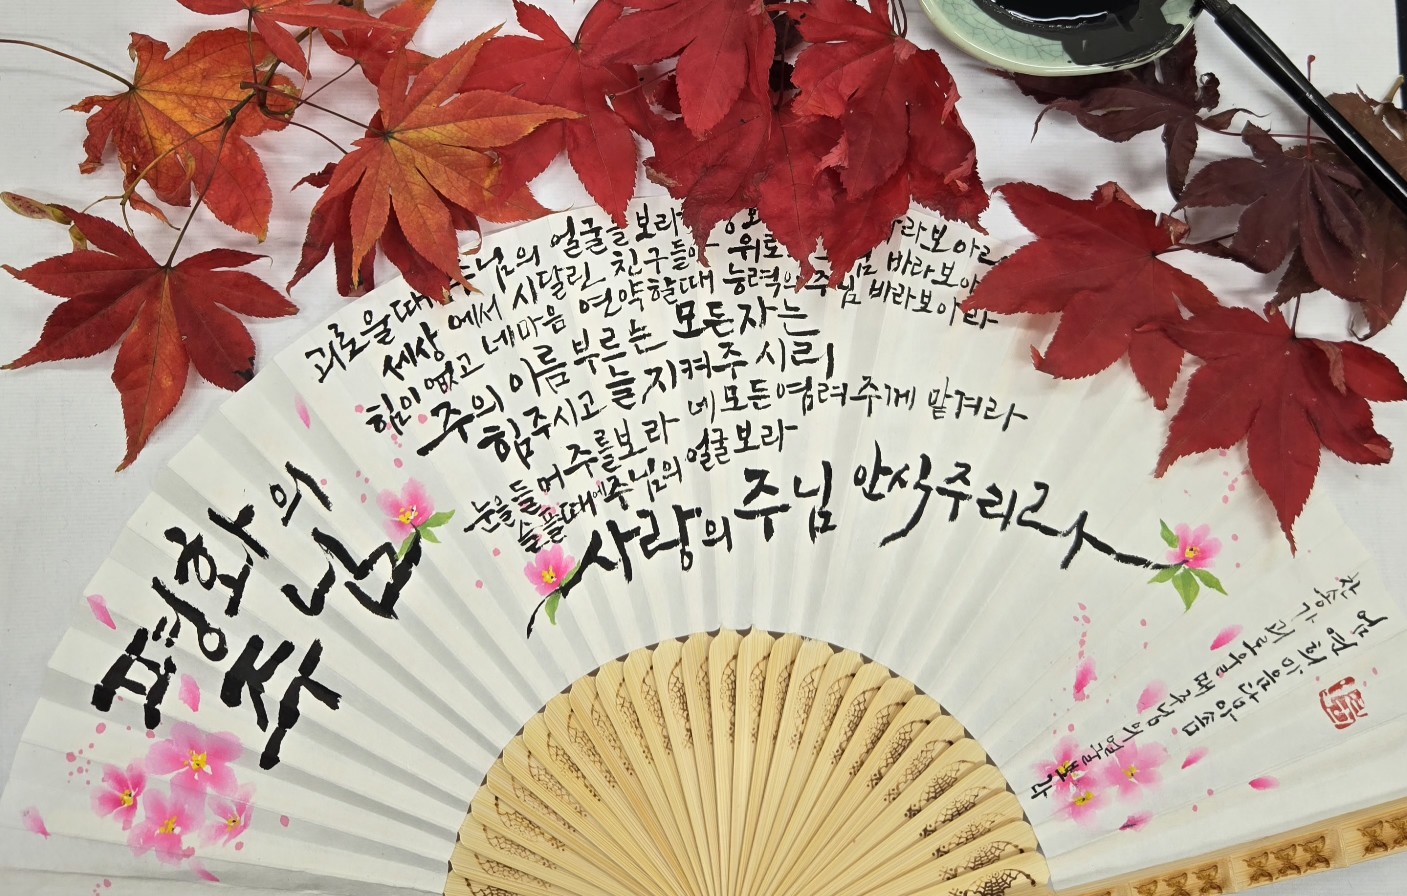 평화의
주님
괴로울때 주님의 얼굴을 보라 평화 바라보아라
세상 에서 시달린 친구들아 위로 님 바라보아
힘이 없고 네마음 연약할때 능력의 주님 바라보아라
주의 이름 부르는 모든자는
힘주시고 늘지켜주시리
눈을들어 주를보라 네모든염려 주께 맡겨라
슬플때에 주님의 얼굴보라
사랑의 주님 안식주리라
찬송가 괴로울때 주님의 얼굴보라